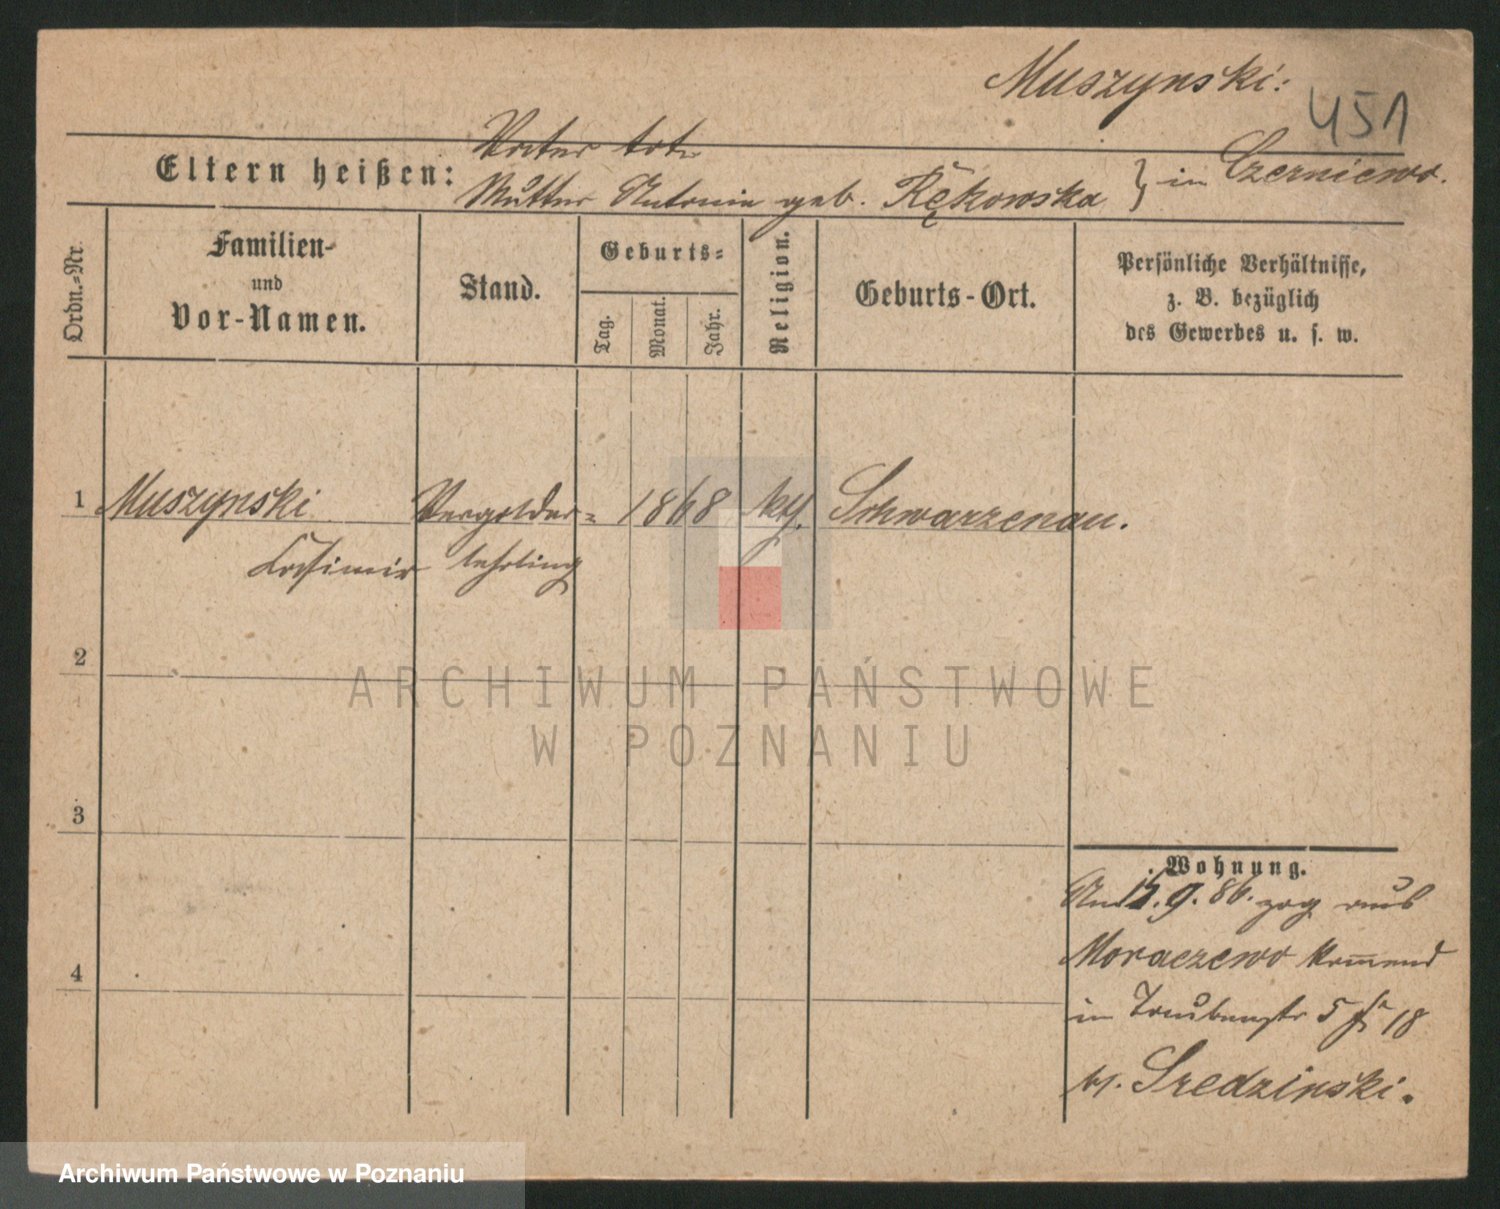 Muszynski:
451
Eltern heißen:
Vater tot
Mutter Antonie geb. Rękowska } in Czerniewo.
Ordn.-Nr.
Familien-
und
Vor-Namen.
Stand.
Geburts-
Tag.
Monat.
Jahr.
Religion.
Geburts-Ort.
Persönliche Verhältnisse,
z. B. bezüglich
des Gewerbes u. s. w.
1 Muszynski Vergolder- 1868 kth. Schwarzenau.
Casimir lehrling
2
3
4
Wohnung.
Am 15.9.86. zog aus
Moraczewo kommend
in Taubenstr 5 18
b/. Sredzinski.
ARCHIWUM PAŃSTWOWE
W POZNANIU
Archiwum Państwowe w Poznaniu